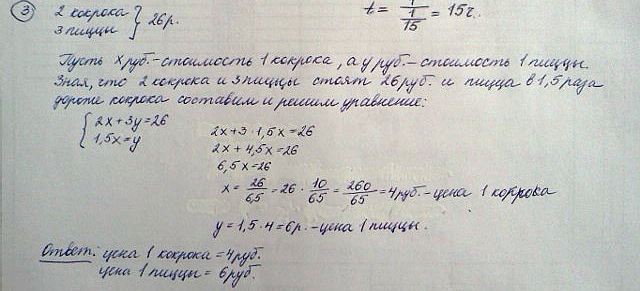 ③ 2 кокрока } 26р.
3 пиццы
t = 1/(1/15) = 15ч.
Пусть х руб. - стоимость 1 кокрока, а у руб. - стоимость 1 пиццы.
Зная, что 2 кокрока и 3 пиццы стоят 26 руб. и пицца в 1,5 раза
дороже кокрока составим и решим уравнение:
{ 2х+3у=26
1,5х=у
2х+3·1,5х=26
2х+4,5х=26
6,5х=26
х = 26/6,5 = 26 · 10/65 = 260/65 = 4руб. - цена 1 кокрока
у = 1,5·4=6р. - цена 1 пиццы.
Ответ: цена 1 кокрока = 4руб.
цена 1 пиццы = 6руб.